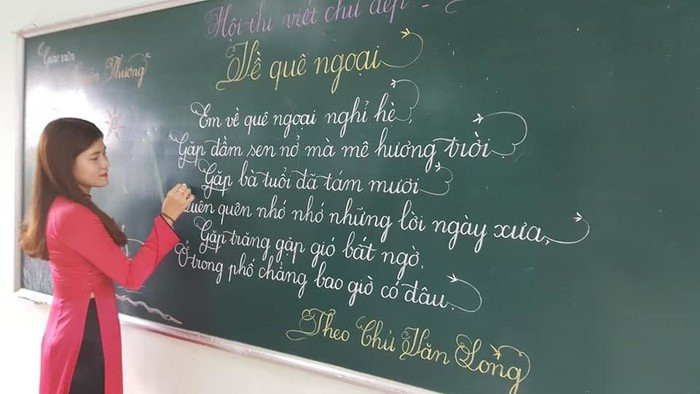 Hội thi viết chữ đẹp
Giáo viên
Thương
Về quê ngoại
Em về quê ngoại nghỉ hè,
Gặp đầm sen nở mà mê hương trời.
Gặp bà tuổi đã tám mươi
quên quên nhớ nhớ những lời ngày xưa,
Gặp trăng gặp gió bất ngờ,
Ở trong phố chẳng bao giờ có đâu.
Theo Chử Văn Long